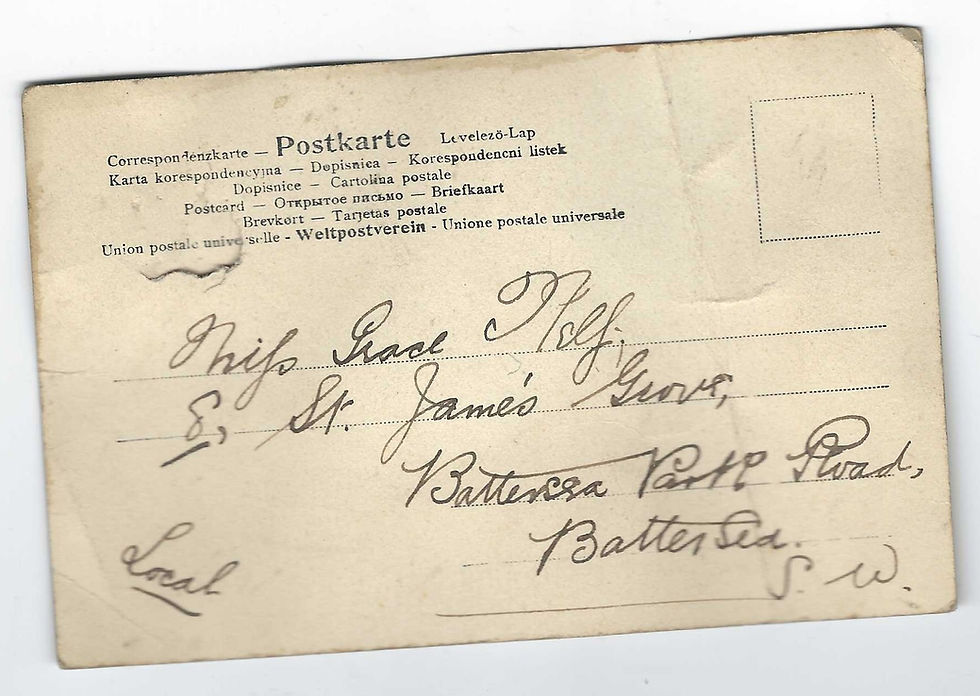 Correspondenzkarte — Postkarte Levelező-Lap
Karta korespondencyjna — Dopisnica — Korespondencni listek
Dopisnice — Cartolina postale
Postcard — Открытое письмо — Briefkaart
Brevkort — Tarjetas postale
Union postale universelle - Weltpostverein - Unione postale universale
Miss Grace
8, St. James's Grove,
Battersea Park Road,
Battersea.
S. W.
Local